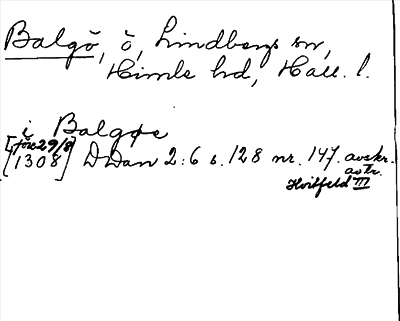 Balgö, ö, Lindbergs sn,
Himle hd, Hall. l.
i Balgøe
[före 29/8
1308] DDan 2:6 s. 128 nr. 147. avskr.
avtr.
Hvitfeld III